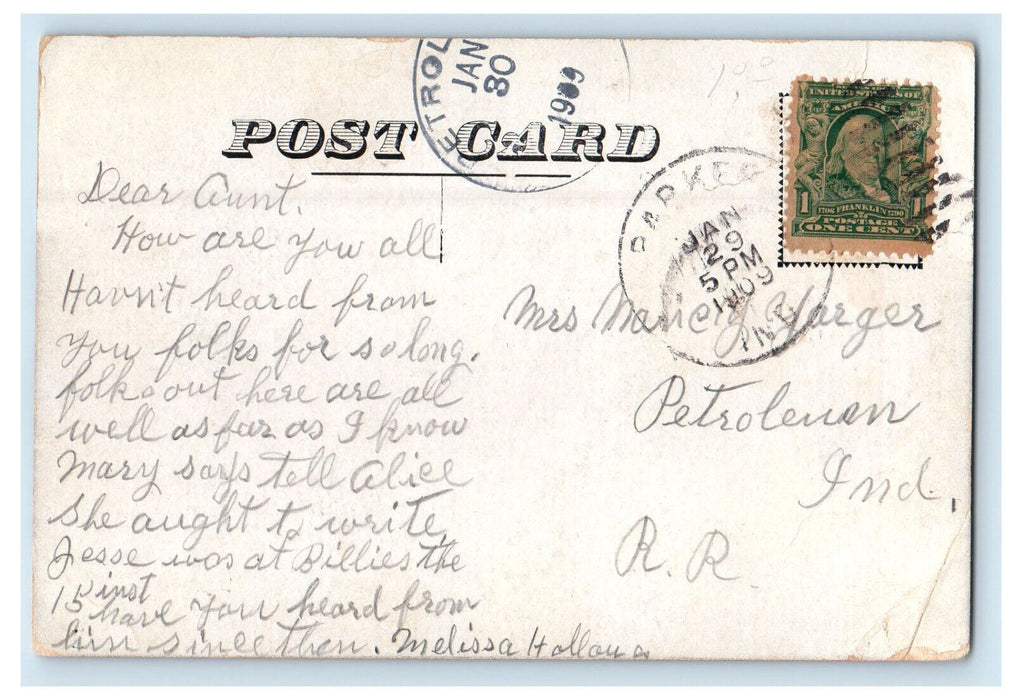 PETROL
JAN
30
1909
1.00
POST CARD
UNITED STATES OF
AMERICA
1
1706 FRANKLIN 1790
1
POSTAGE
ONE CENT
PARKER
JAN
29
5 PM
1909
IND
Dear Aunt.
How are you all
Havn't heard from
you folks for so long.
folks out here are all
well as far as I know
Mary says tell Alice
she aught to write
Jesse was at Billies the
15 inst
have you heard from
him since then. Melissa
Mrs Nancy Yarger
Petroleum
Ind.
R. R.